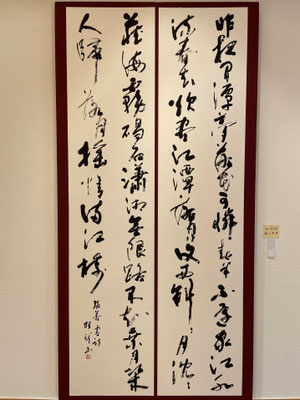 昨夜閒潭夢落花可憐春半不還家江水
流春去欲盡江潭落月復西斜々月沈々
藏海霧碣石瀟湘無限路不知乘月幾
人歸落月搖情滿江樹